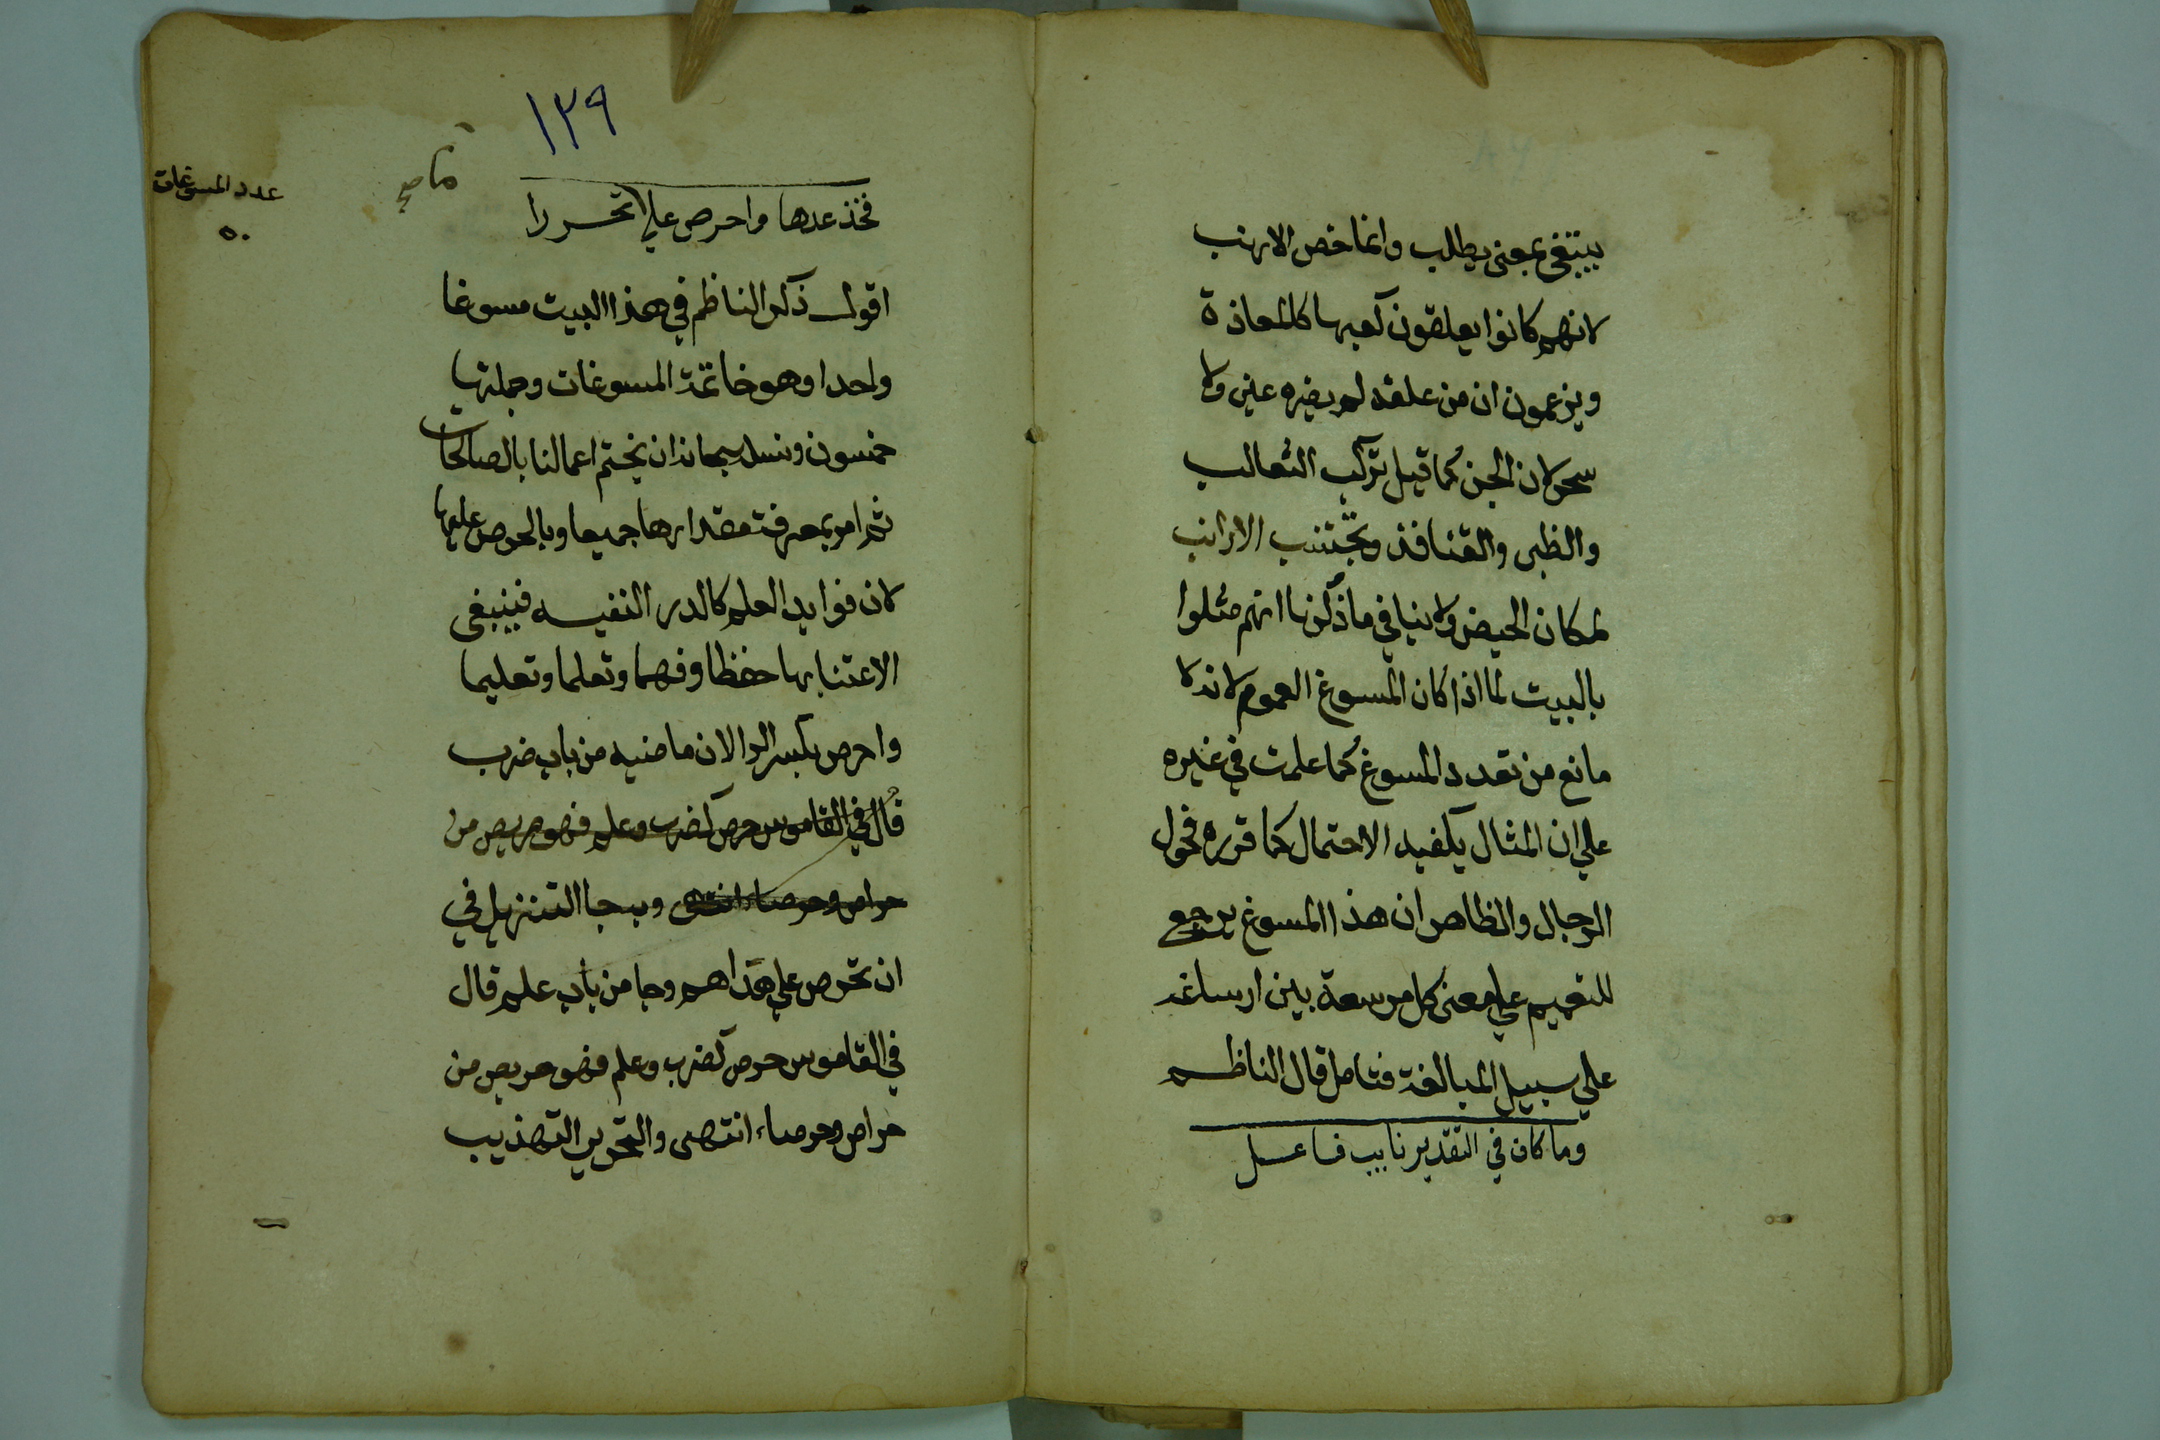 يبتغي بمعنى يطلب وانما خص الارنب
لانهم كانوا يعلقون كعبها كالمعاذة
ويزعمون ان من علقه لم يضره عين ولا
سحر لان الجن كما قيل تركب الثعالب
والظبى والقنافذ وتجتنب الارانب
لمكان الحيض ولا ينافي ما ذكرنا انهم مثلوا
بالبيت لما اذا كان المسوغ العموم لانه لا
مانع من تعدد المسوغ كما علمت في غيره
علي ان المثال يكفيه الاحتمال كما قرره فحول
الرجال والظاهر ان هذا المسوغ يرجع
للتعميم علي معنى كل مرسعة بين ارساغه
علي سبيل المبالغة فتامل قال الناظم
وما كان في التقدير نايب فاعل
١٢٩
عدد المسوغات
٥٠
فخذ عدها واحرص علي تحررا
اقول ذكر الناظم في هذا البيت مسوغا
واحدا وهو خاتمة المسوغات وجملتها
خمسون ونسئله سبحانه ان يختم اعمالنا بالصالحات
ثم امر بمعرفة مقدارها جميعا وبالحرص عليها
لان فوايد العلم كالدر النفيسه فينبغي
الاعتنا بها حفظا وفهما وتعلما وتعليما
واحرص بكسر الرا لان ماضيه من باب ضرب
قال في القاموس حرص كضرب وعلم فهو حريص من
حراص وحرصاء انتهى وبه جا التنزيل في
ان تحرص علي هداهم وجا من باب علم قال
في القاموس حرص كضرب وعلم فهو حريص من
حراص وحرصاء انتهى والتحرير التهذيب